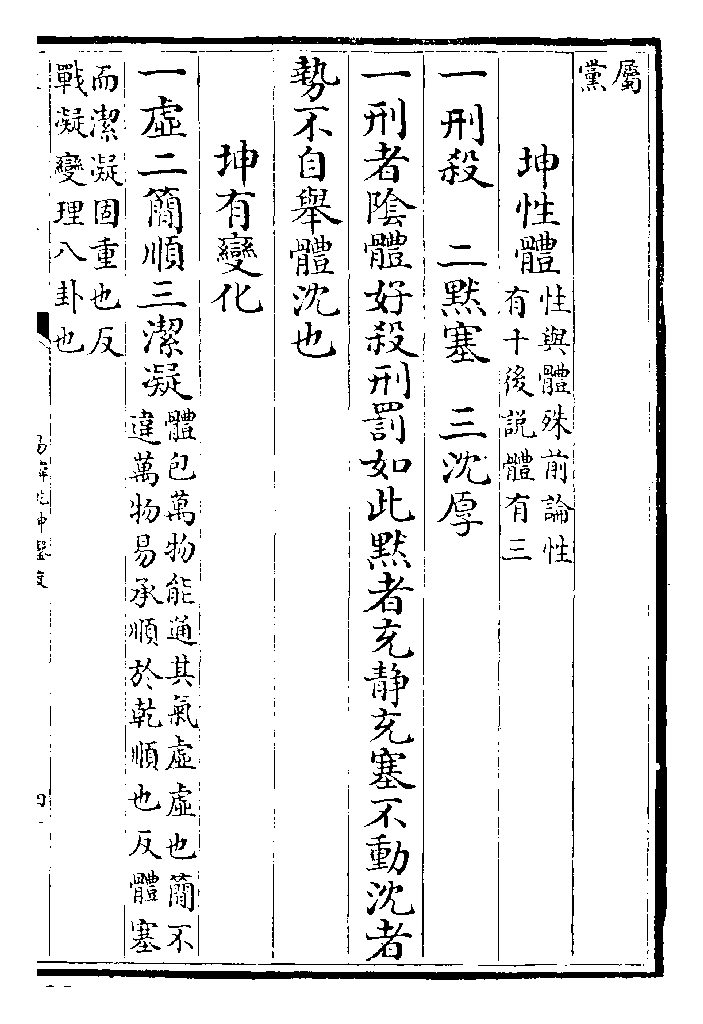 屬
黨
坤性體
性與體殊前論性
有十後説體有三
一刑殺　二黙塞　三沈厚
一刑者陰體好殺刑罰如此黙者充静充塞不動沈者
勢不自舉體沈也
坤有變化
一虛二簡順三潔凝
體包萬物能通其氣虛虛也簡不
違萬物易承順於乾順也反體塞
而潔凝固重也反
戰凝變理八卦也